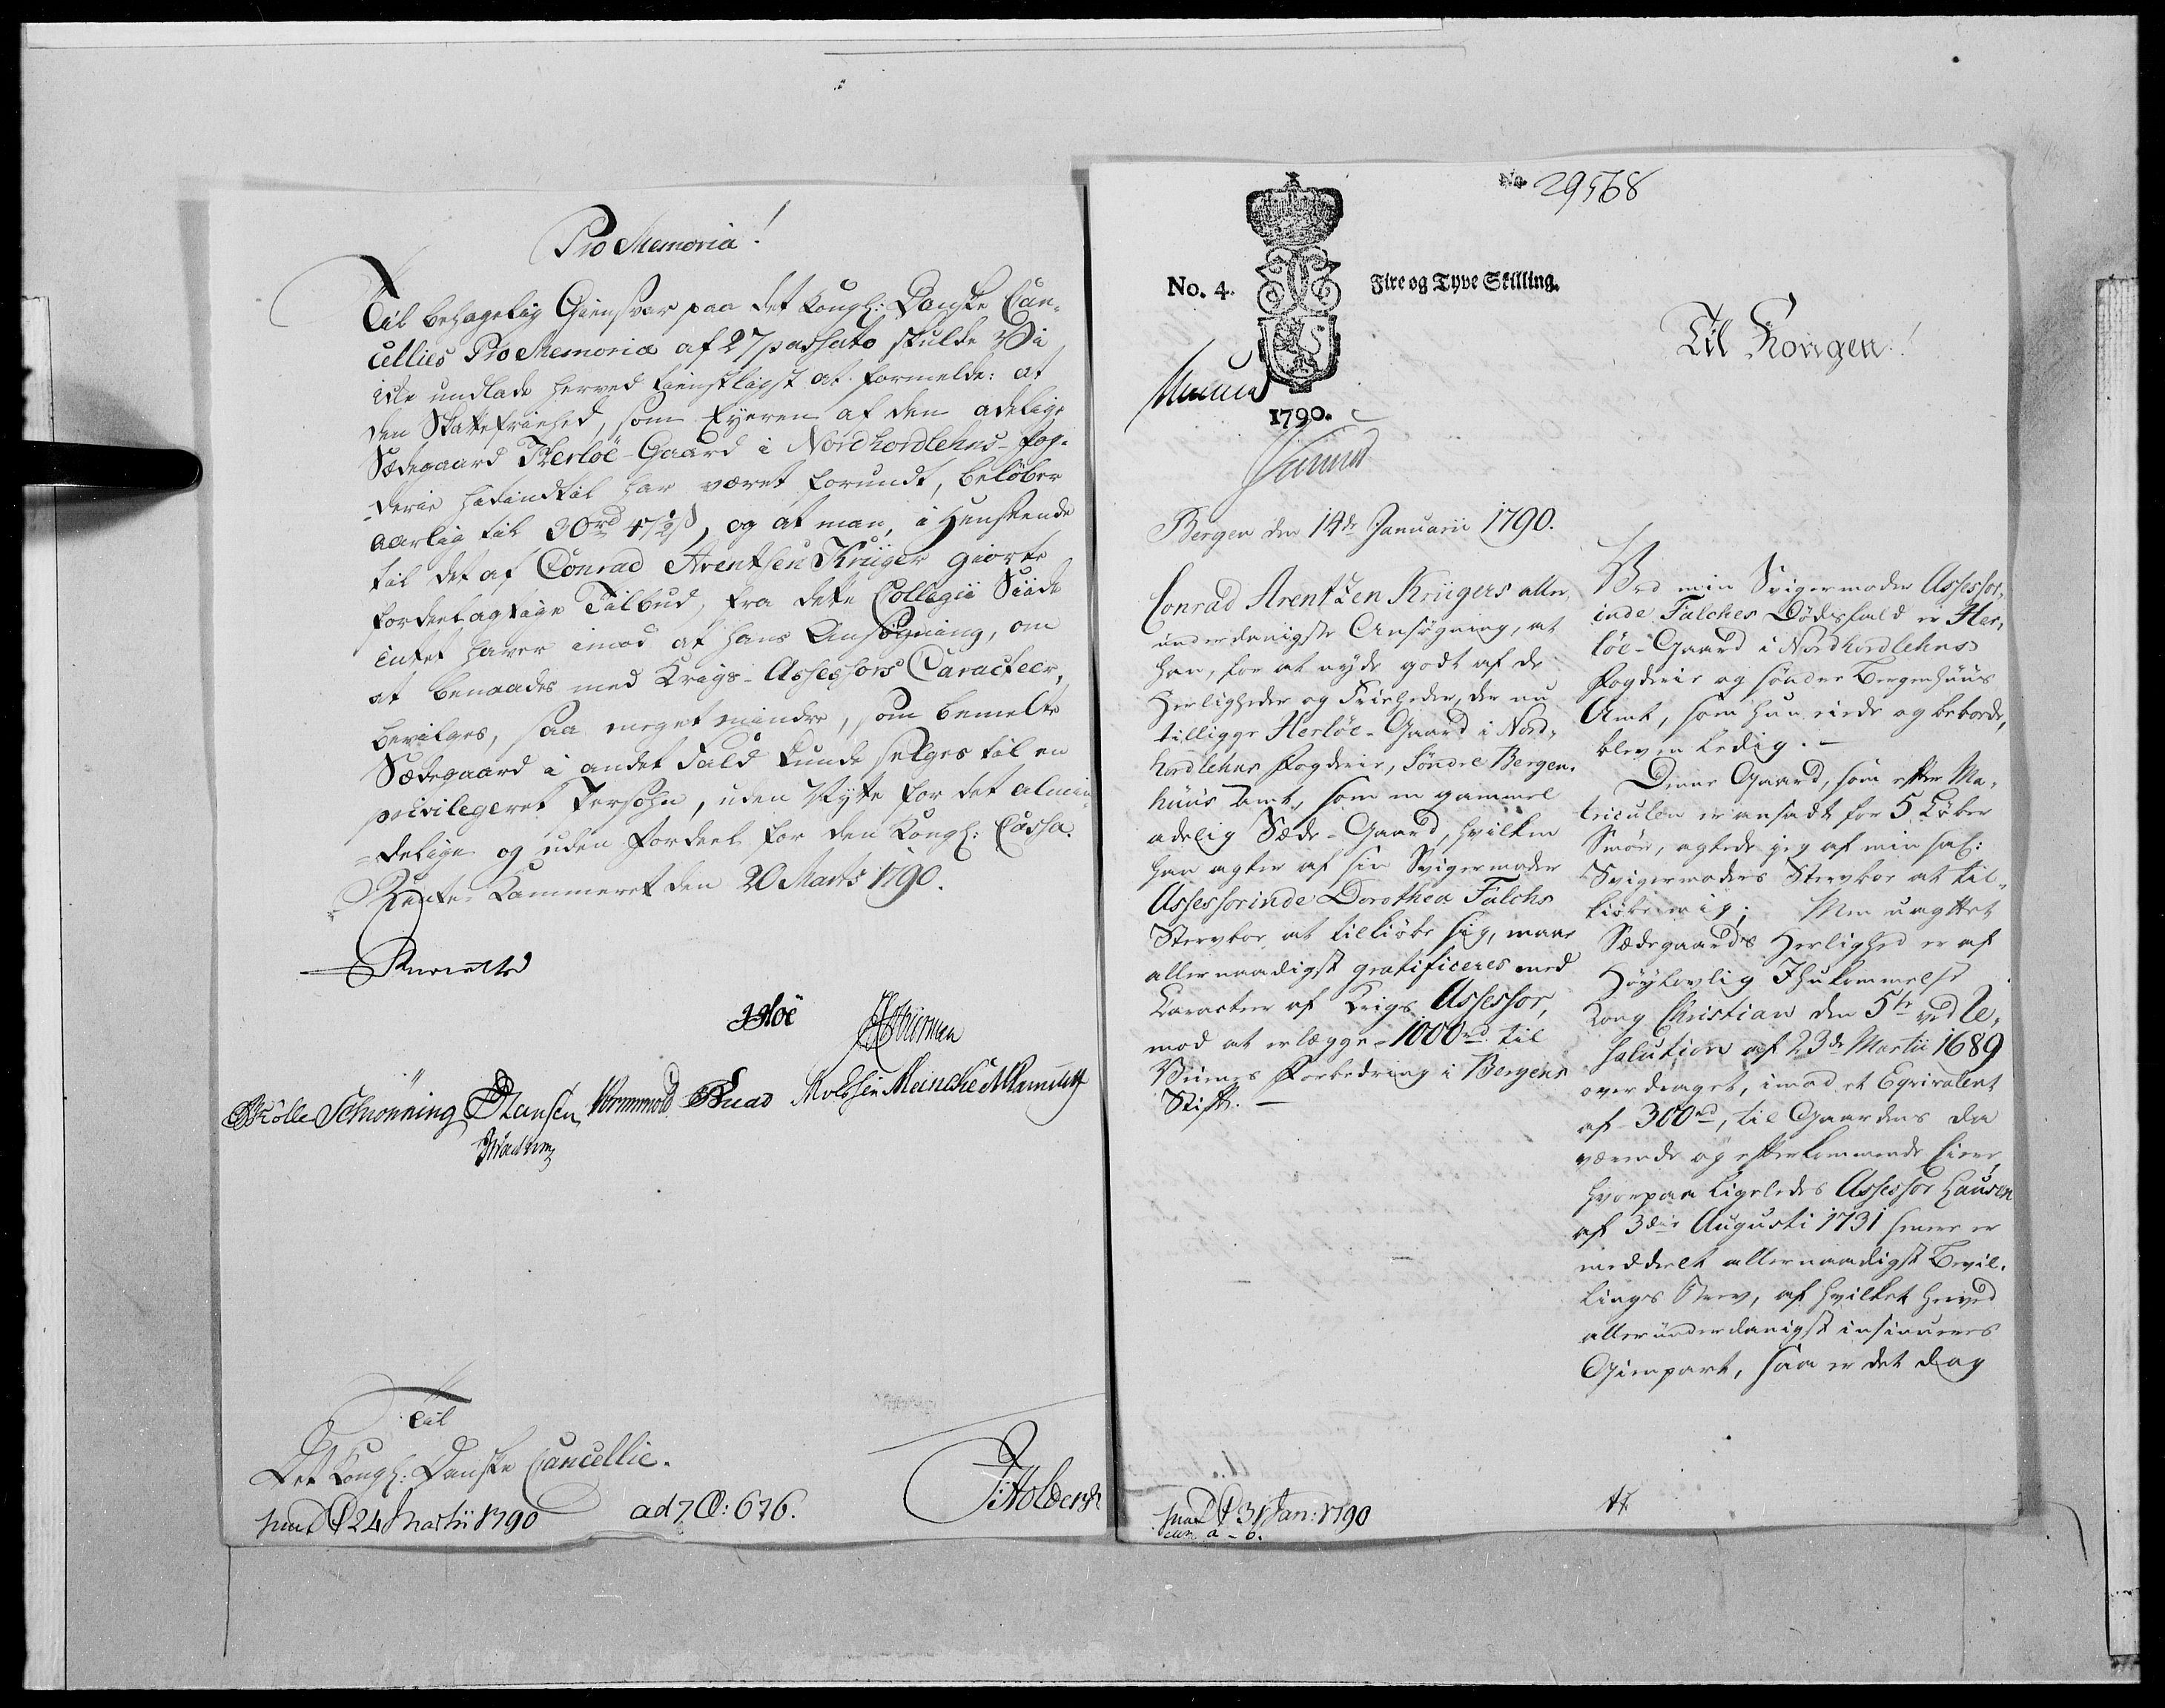 Pro Memoria!
Til behagelig Giensvar paa det Kongl: Danske Can-
cellies Pro Memoria af 27 passato skulde Vi
ikke undlade herved tienstligst at formelde: at
den Skattefriehed, som Eyeren af den adelige
Sædegaard Herløe-Gaard i Nordhordlehns-Fog-
derie hidindtil har været forundt, beløber
aarlig til 30 rd 47½ s, og at man, i Henseende
til det af Conrad Arentsen Krüger giorte
fordeelagtige Tilbud, fra dette Collegii Siide
intet haver imod at hans Ansøgning, om
at benaades med Krigs-Assessors Caracteer,
bevilges, saa meget mindre, som bemelte
Sædegaard i andet Fald kunde selges til en
privilegeret Persohn, uden Nytte for det almin-
delige og uden Fordeel for den Kongl: Cassa.
Rente-Kammeret den 20 Marts 1790.
Schiønning Hansen Wormwold Meincke
Til
Det Kongl: Danske Cancellie.
24 Martii 1790
ad 7 O: 676.
No 29568
No. 4. Fire og Tyve Skilling.
1790.
Til Kongen!
Bergen den 14de Januarii 1790.
Conrad Arentzen Krügers aller-
underdanigste Ansøgning, at
han, for at nyde godt af de
Herligheder og Friheder, der nu
tilligge Herløe-Gaard i Nord-
hordlehns Fogderie, Søndre Bergen-
huus Amt, som en gammel
adelig Sæde-Gaard, hvilken
han agter af sin Svigermoder
Assessorinde Dorothea Falchs
Stervboe at tilkiøbe sig, maae
allernaadigst gratificeres med
Caracteer af Krigs Assessor,
mod at erlægge 1000 rd til
Veienes Forbedring i Bergens
Stift.
Ved min Svigermoder Assessor-
inde Falches Dødsfald er Her-
løe-Gaard i Nordhordlehns
Fogderie og søndre Bergenhuus
Amt, som hun eiede og beboede,
bleven ledig.
Denne Gaard, som efter Ma-
triculen er ansadt for 5 Løber
Smør, agtede jeg af min sal:
Svigermoders Stervboe at til-
kiøbe mig; Men uagtet
Sædegaards Herlighed er af
Høylovlig Ihukommelse
Kong Christian den 5te ved Re-
solution af 23de Martii 1689
overdraget, imod et Eqvivalent
af 300 rd, til Gaardens da
værende og efterkommende Eiere,
hvorpaa ligeledes Assessor
af 3die Augusti 1731 senere er
meddeelt allernaadigst Bevil-
lings Brev, af hvilket herved
allerunderdanigst insinueres
Gienpart, saa er det dog
31 Jan: 1790
cum a - b.